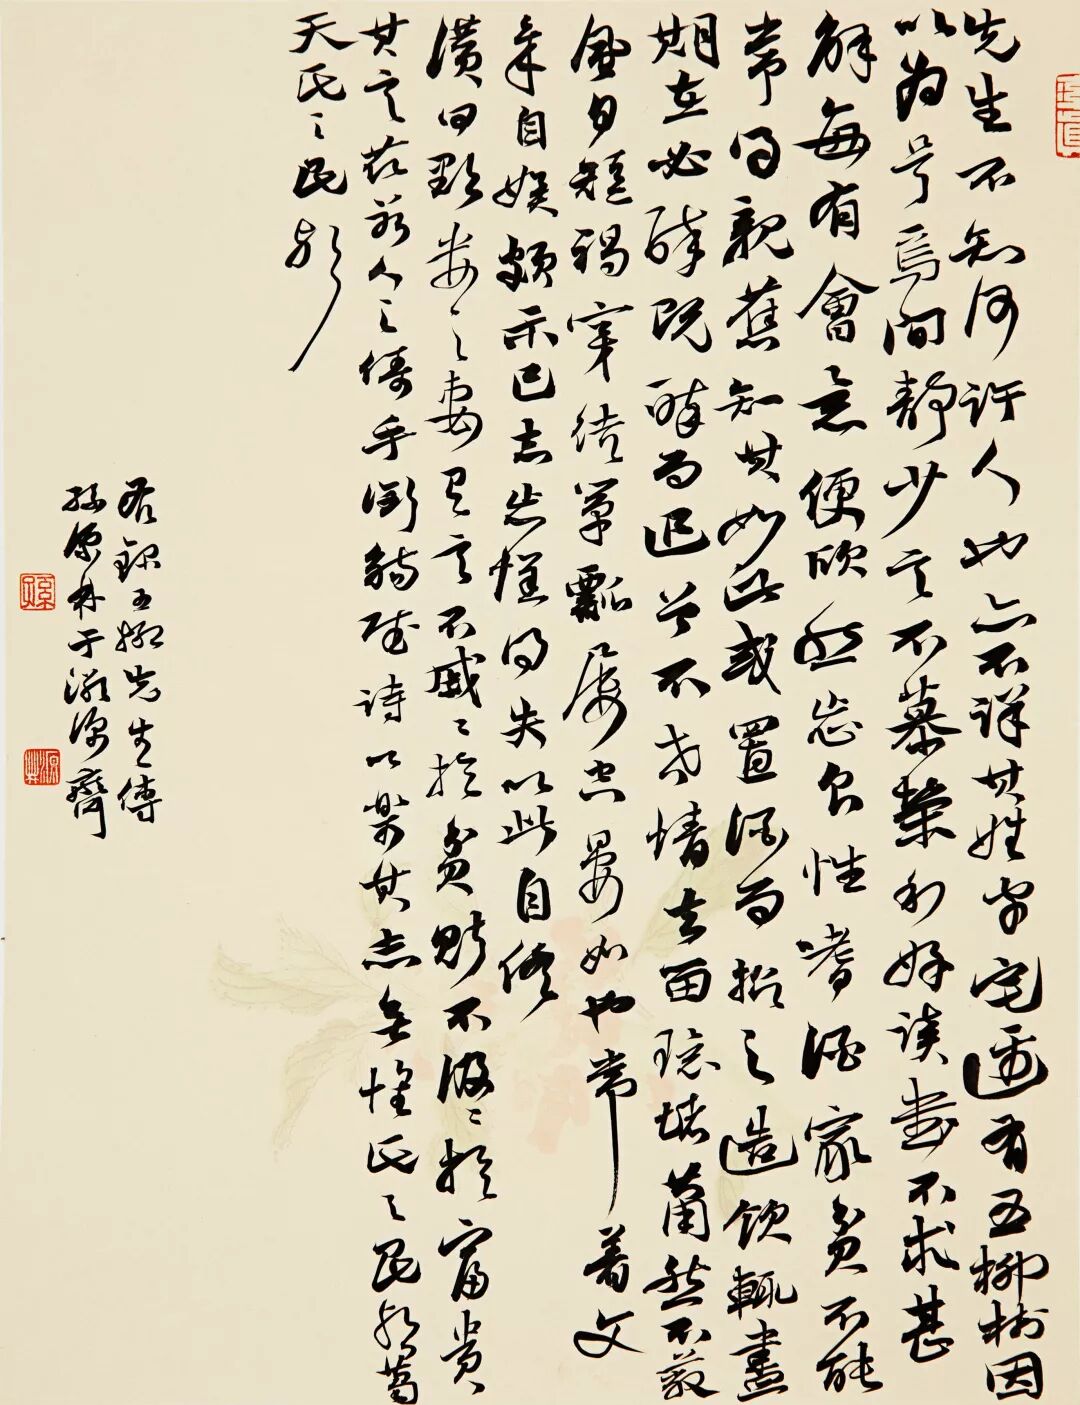 先生不知何许人也亦不详其姓字宅边有五柳树因
以为号焉闲静少言不慕荣利好读书不求甚
解每有會意便欣然忘食性嗜酒家贫不能
常得親舊知其如此或置酒而招之造饮輒盡
期在必醉既醉而退曾不吝情去留環堵蕭然不蔽
風日短褐穿结箪瓢屡空晏如也常著文
章自娱颇示己志忘懷得失以此自终
赞曰黔娄之妻有言不戚戚於贫贱不汲汲於富贵
其言兹若人之俦乎衔觞赋诗以樂其志無懷氏之民歟葛
天氏之民歟
右録五柳先生傳
孫源林于潄深齋